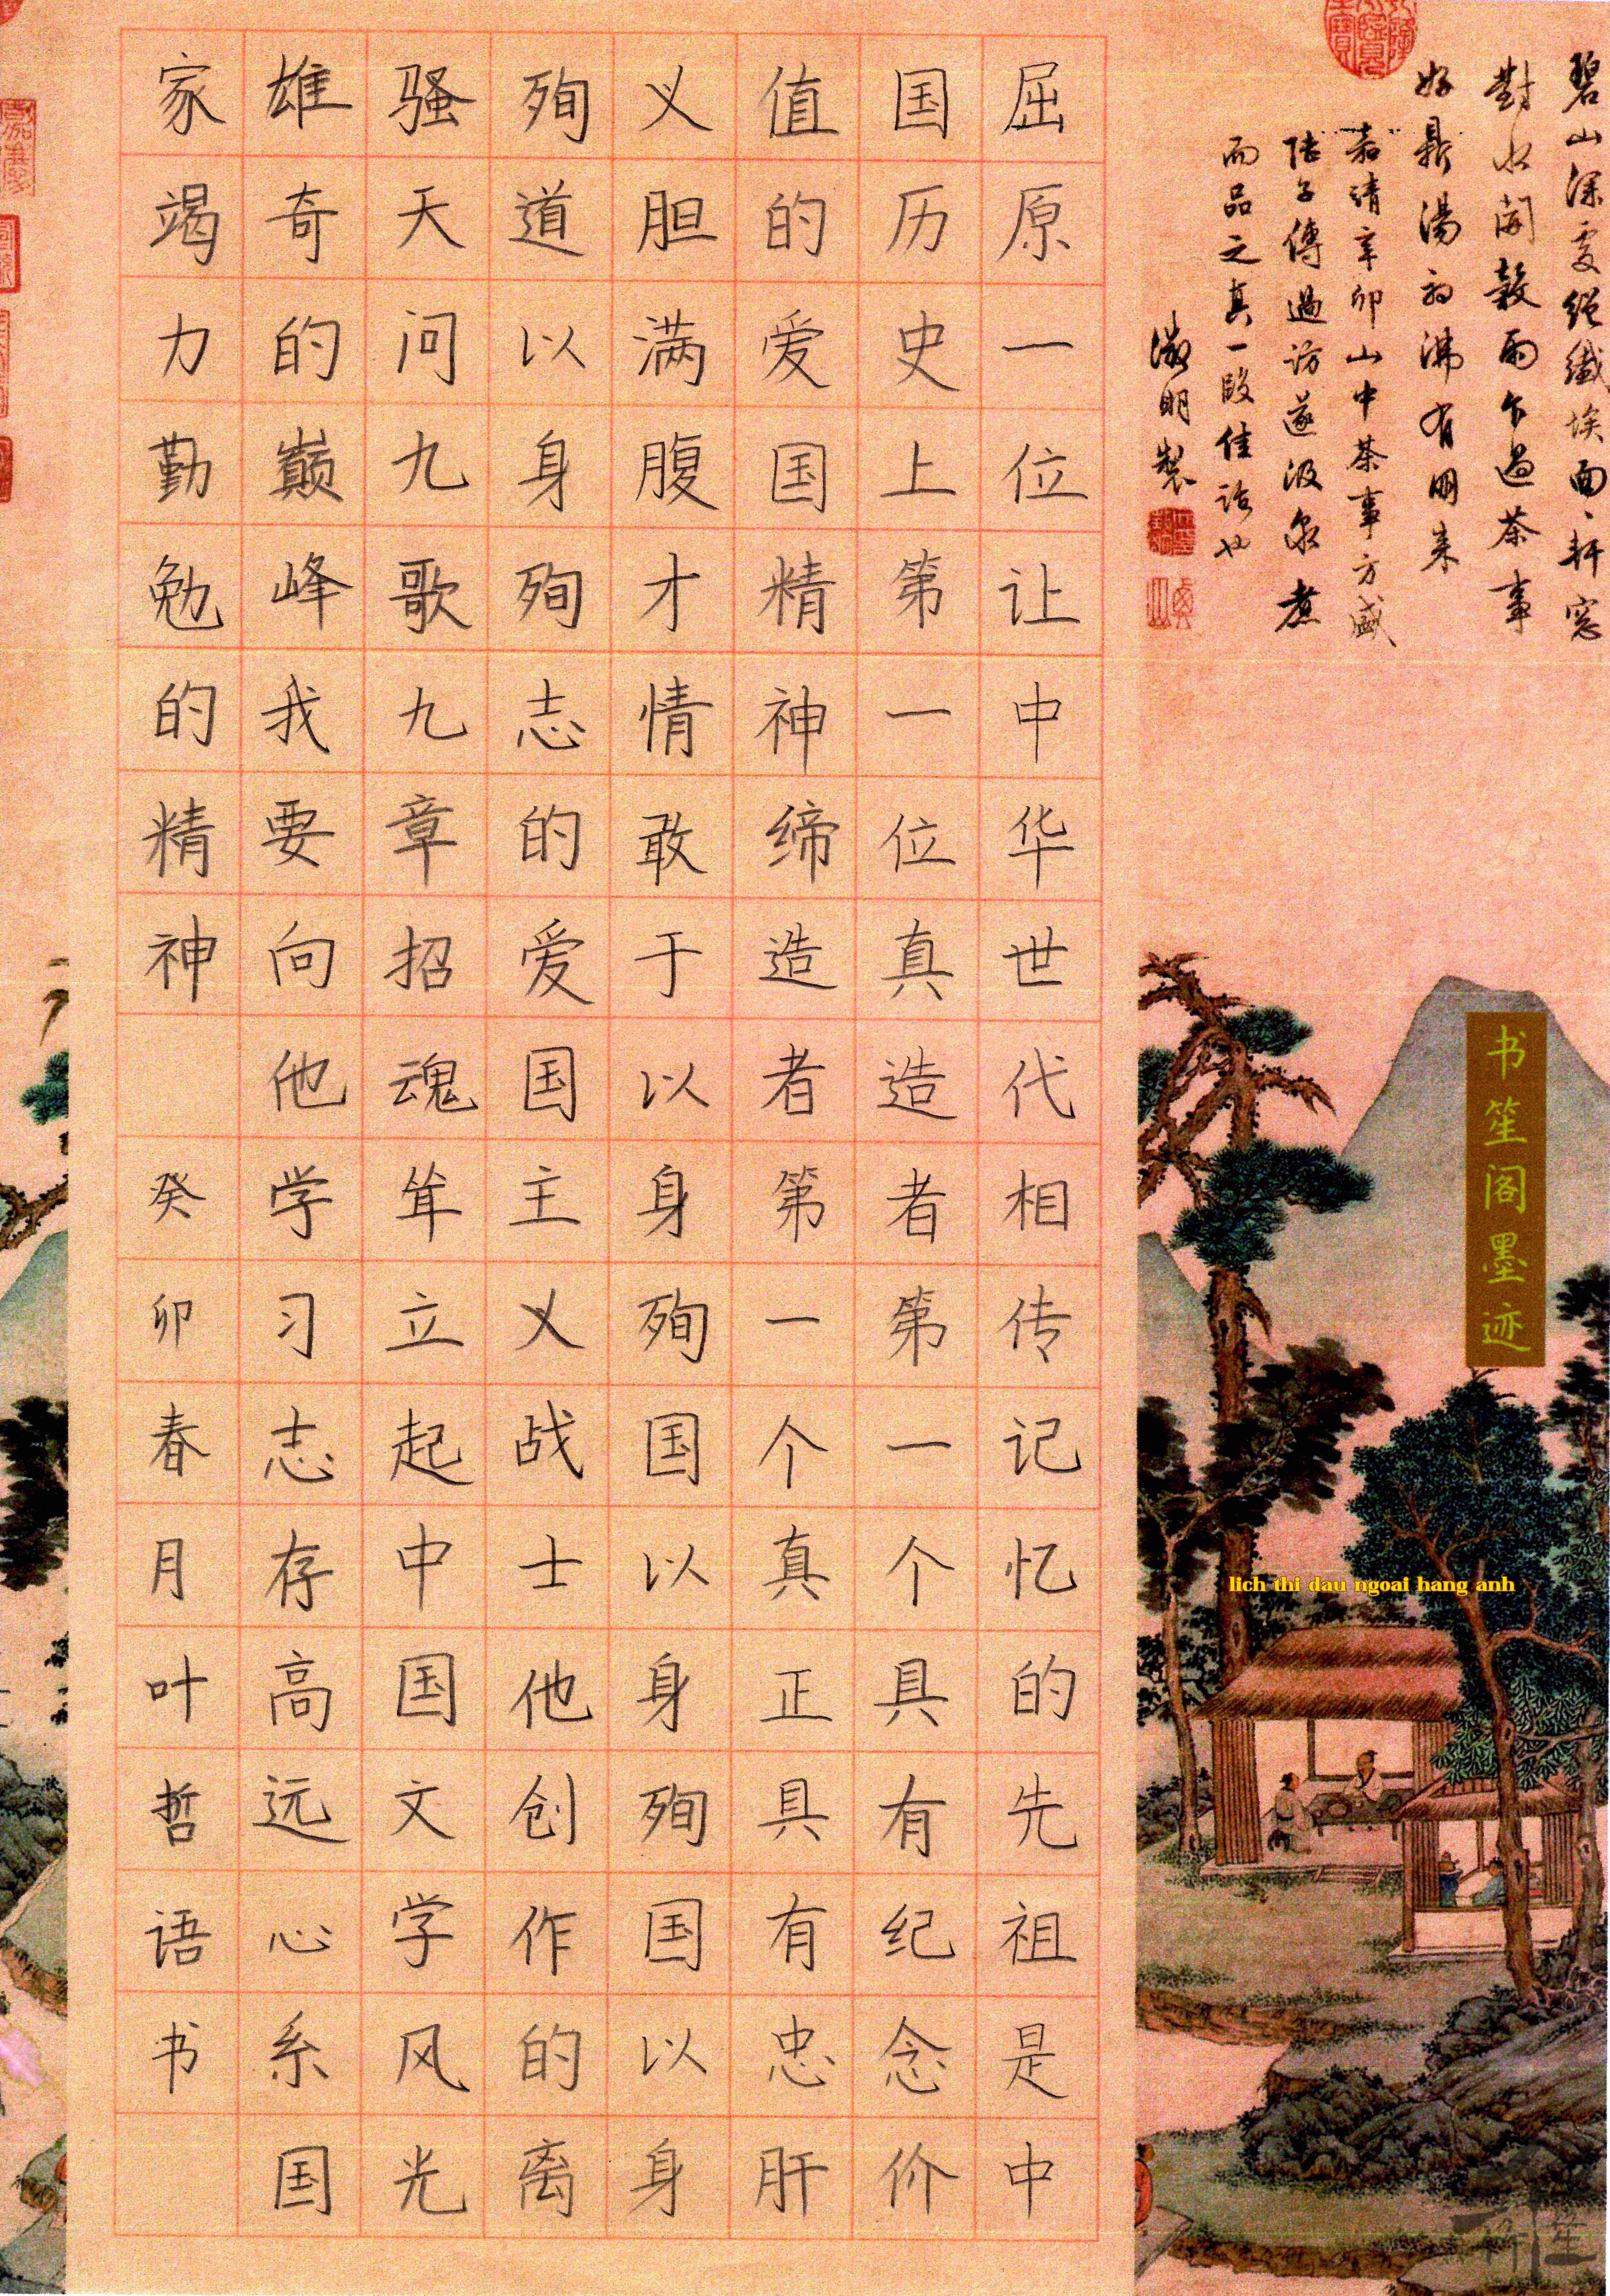 碧山深處絕纖埃面面軒窓
對水開穀雨乍過茶事
好鼎湯初沸有朋來
嘉靖辛卯山中茶事方盛
陸子傳過訪遂汲泉煮
而品之真一段佳話也
徵明製
屈原一位让中华世代相传记忆的先祖是中
国历史上第一位真造者第一个具有纪念价
值的爱国精神缔造者第一个真正具有忠肝
义胆满腹才情敢于以身殉国以身殉国以身
殉道以身殉志的爱国主义战士他创作的离
骚天问九歌九章招魂耸立起中国文学风光
雄奇的巅峰我要向他学习志存高远心系国
家竭力勤勉的精神
癸卯春月叶哲语书
书笙阁墨迹
lich thi dau ngoai hang anh